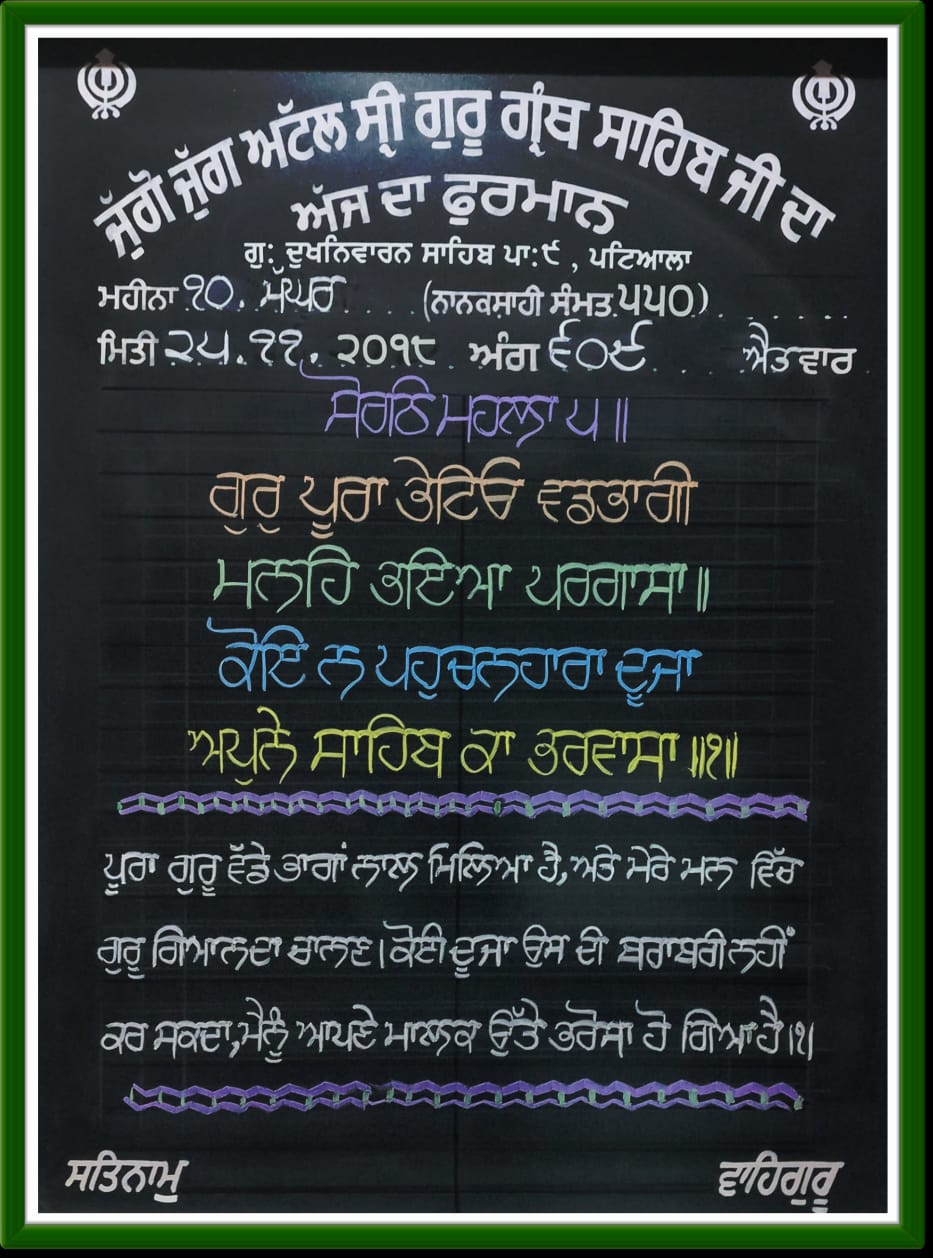 ਜੁੱਗੋ ਜੁੱਗ ਅਟੱਲ ਸ੍ਰੀ ਗੁਰੂ ਗ੍ਰੰਥ ਸਾਹਿਬ ਜੀ ਦਾ
ਅੱਜ ਦਾ ਫੁਰਮਾਨ
ਗੁ: ਦੁਖਨਿਵਾਰਨ ਸਾਹਿਬ ਪਾ:੯ , ਪਟਿਆਲਾ
ਮਹੀਨਾ ੧੦. ਮੱਘਰ .... (ਨਾਨਕਸ਼ਾਹੀ ਸੰਮਤ ੫੫੦) ......
ਮਿਤੀ ੨੫.੧੧. ੨੦੧੮ . ਅੰਗ ੬੦੯ .... ਐਤਵਾਰ
ਸੋਰਠਿ ਮਹਲਾ ੫ ॥
ਗੁਰੁ ਪੂਰਾ ਭੇਟਿਓ ਵਡਭਾਗੀ
ਮਨਹਿ ਭਇਆ ਪਰਗਾਸਾ॥
ਕੋਇ ਨ ਪਹੁਚਨਹਾਰਾ ਦੂਜਾ
ਅਪੁਨੇ ਸਾਹਿਬ ਕਾ ਭਰਵਾਸਾ ॥੧॥
ਪੂਰਾ ਗੁਰੂ ਵੱਡੇ ਭਾਗਾਂ ਨਾਲ ਮਿਲਿਆ ਹੈ, ਅਤੇ ਮੇਰੇ ਮਨ ਵਿੱਚ
ਗੁਰੂ ਗਿਆਨ ਦਾ ਚਾਨਣ। ਕੋਈ ਦੂਜਾ ਉਸ ਦੀ ਬਰਾਬਰੀ ਨਹੀਂ
ਕਰ ਸਕਦਾ, ਮੈਨੂੰ ਆਪਣੇ ਮਾਲਕ ਉੱਤੇ ਭਰੋਸਾ ਹੋ ਗਿਆ ਹੈ।੧।
ਸਤਿਨਾਮੁ ਵਾਹਿਗੁਰੂ